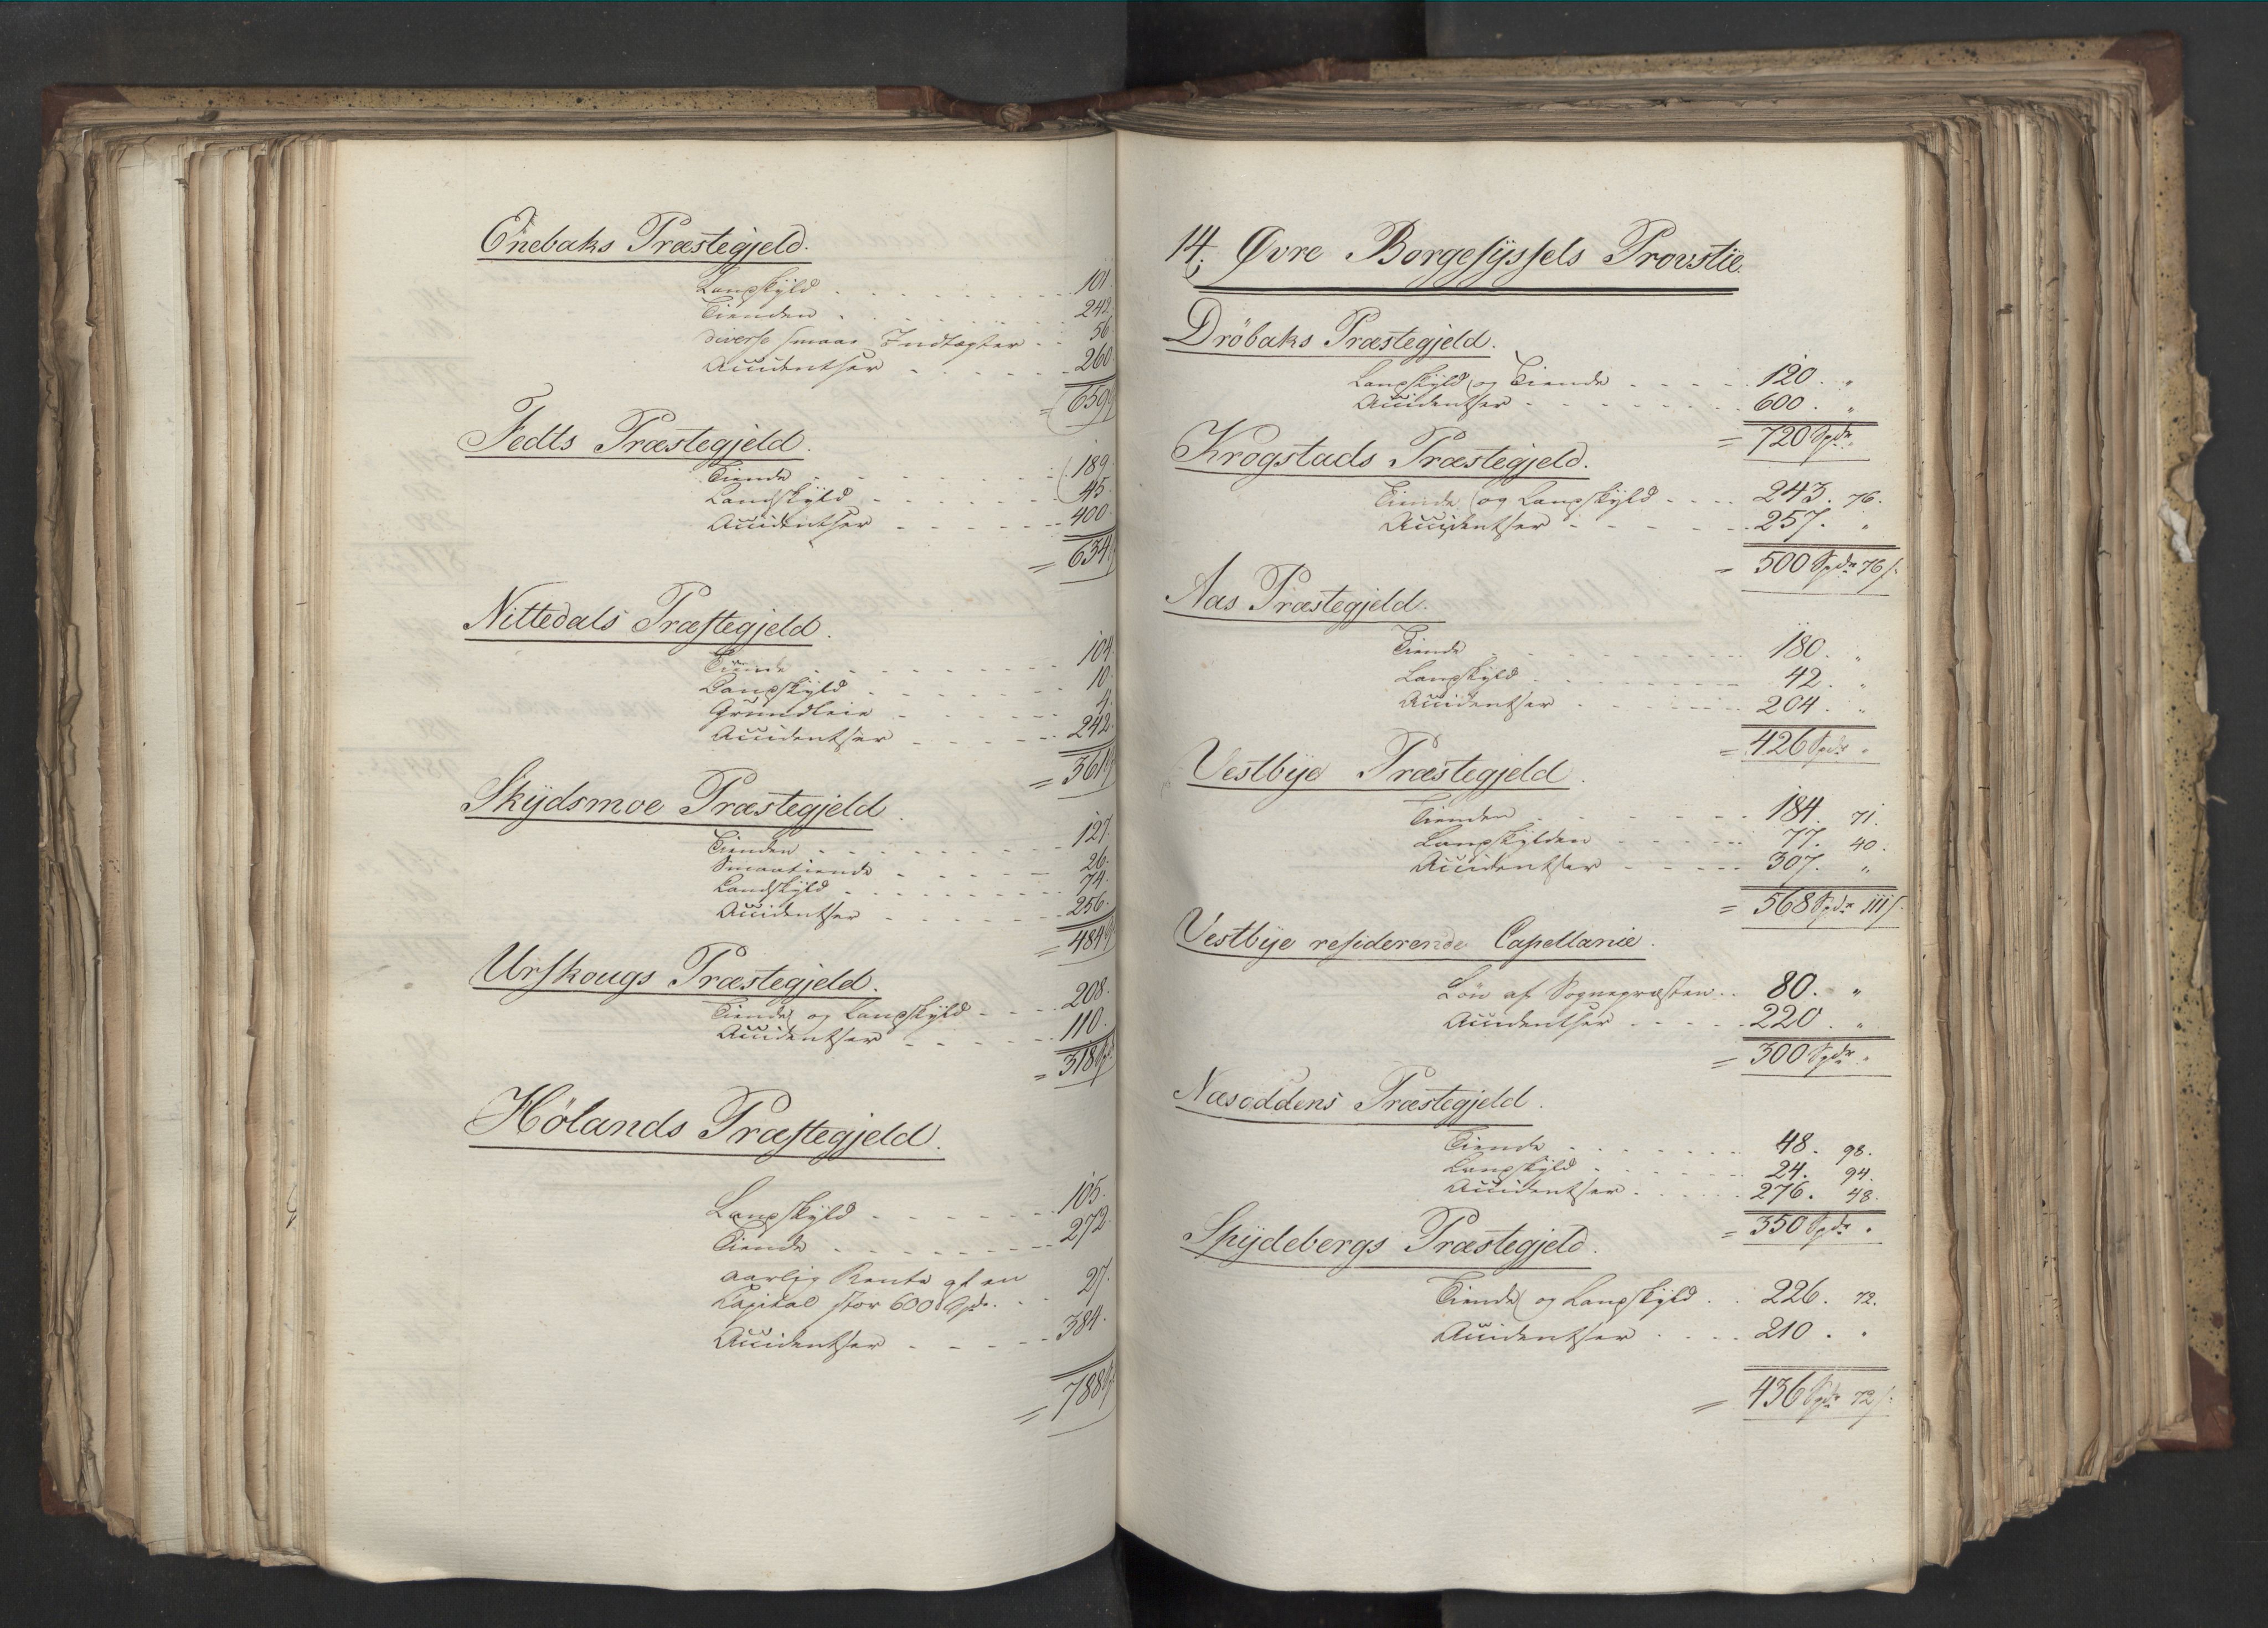 Enebaks Præstegjeld.
Landskyld . . . . . . . 101.
Tienden . . . . . . . 242.
diverse smaae Indtægter . . 56.
Accidentser . . . . . . 260
= 659
Fedts Præstegjeld.
Tiende . . . . . . . 189.
Landskyld . . . . . . 45.
Accidentser . . . . . 400.
= 634
Nittedals Præstegjeld.
Tiende . . . . . . . 104.
Landskyld . . . . . . 10.
Grundleie . . . . . 4.
Accidentser . . . . . 242.
= 361
Skydsmoe Præstegjeld.
Tienden . . . . . . . 127.
Smaatiende . . . . . . 26.
Landskyld . . . . . . . 74.
Accidentser . . . . . . 256.
= 484
Urskougs Præstegjeld.
Tiende og Landskyld . . . 208.
Accidentser . . . . . 110.
= 318
Hølands Præstegjeld.
Landskyld . . . . . . 105.
Tiende . . . . . . . 272.
aarlig Rente af en
Capital stor 600 Spd. . . 27.
Accidentser . . . . . 384.
= 788
14, Øvre Borgesyssels Provstie.
Drøbaks Præstegjeld.
Landskyld og Tiende . . . . . 120. "
Accidentser . . . . . . . 600. "
= 720 Spdr "
Krogstads Præstegjeld.
Tiende og Landskyld . . . . 243. 76.
Accidentser . . . . . . 257. "
= 500 Spdr 76 s.
Aas Præstegjeld.
Tiende . . . . . . . 180. "
Landskyld . . . . . . . 42. "
Accidentser . . . . . . 204. "
= 426 Spdr "
Vestbye Præstegjeld.
Tienden . . . . . . . 184. 71.
Landskylden . . . . . . 77. 40.
Accidentser . . . . . 307. "
= 568 Spdr 111 s.
Vestbye residerende Capellanie.
Løn af Sognepræsten . . 80. "
Accidentser . . . . . 220. "
= 300 Spdr "
Næsoddens Præstegjeld.
Tiende . . . . . . . 48. 98.
Landskyld . . . . . . 24. 94.
Accidentser . . . . . 276. 48.
= 350 Spdr "
Spydebergs Præstegjeld.
Tiende og Landskyld . . 226. 72.
Accidentser . . . . 210. "
= 436 Spdr 72 s.